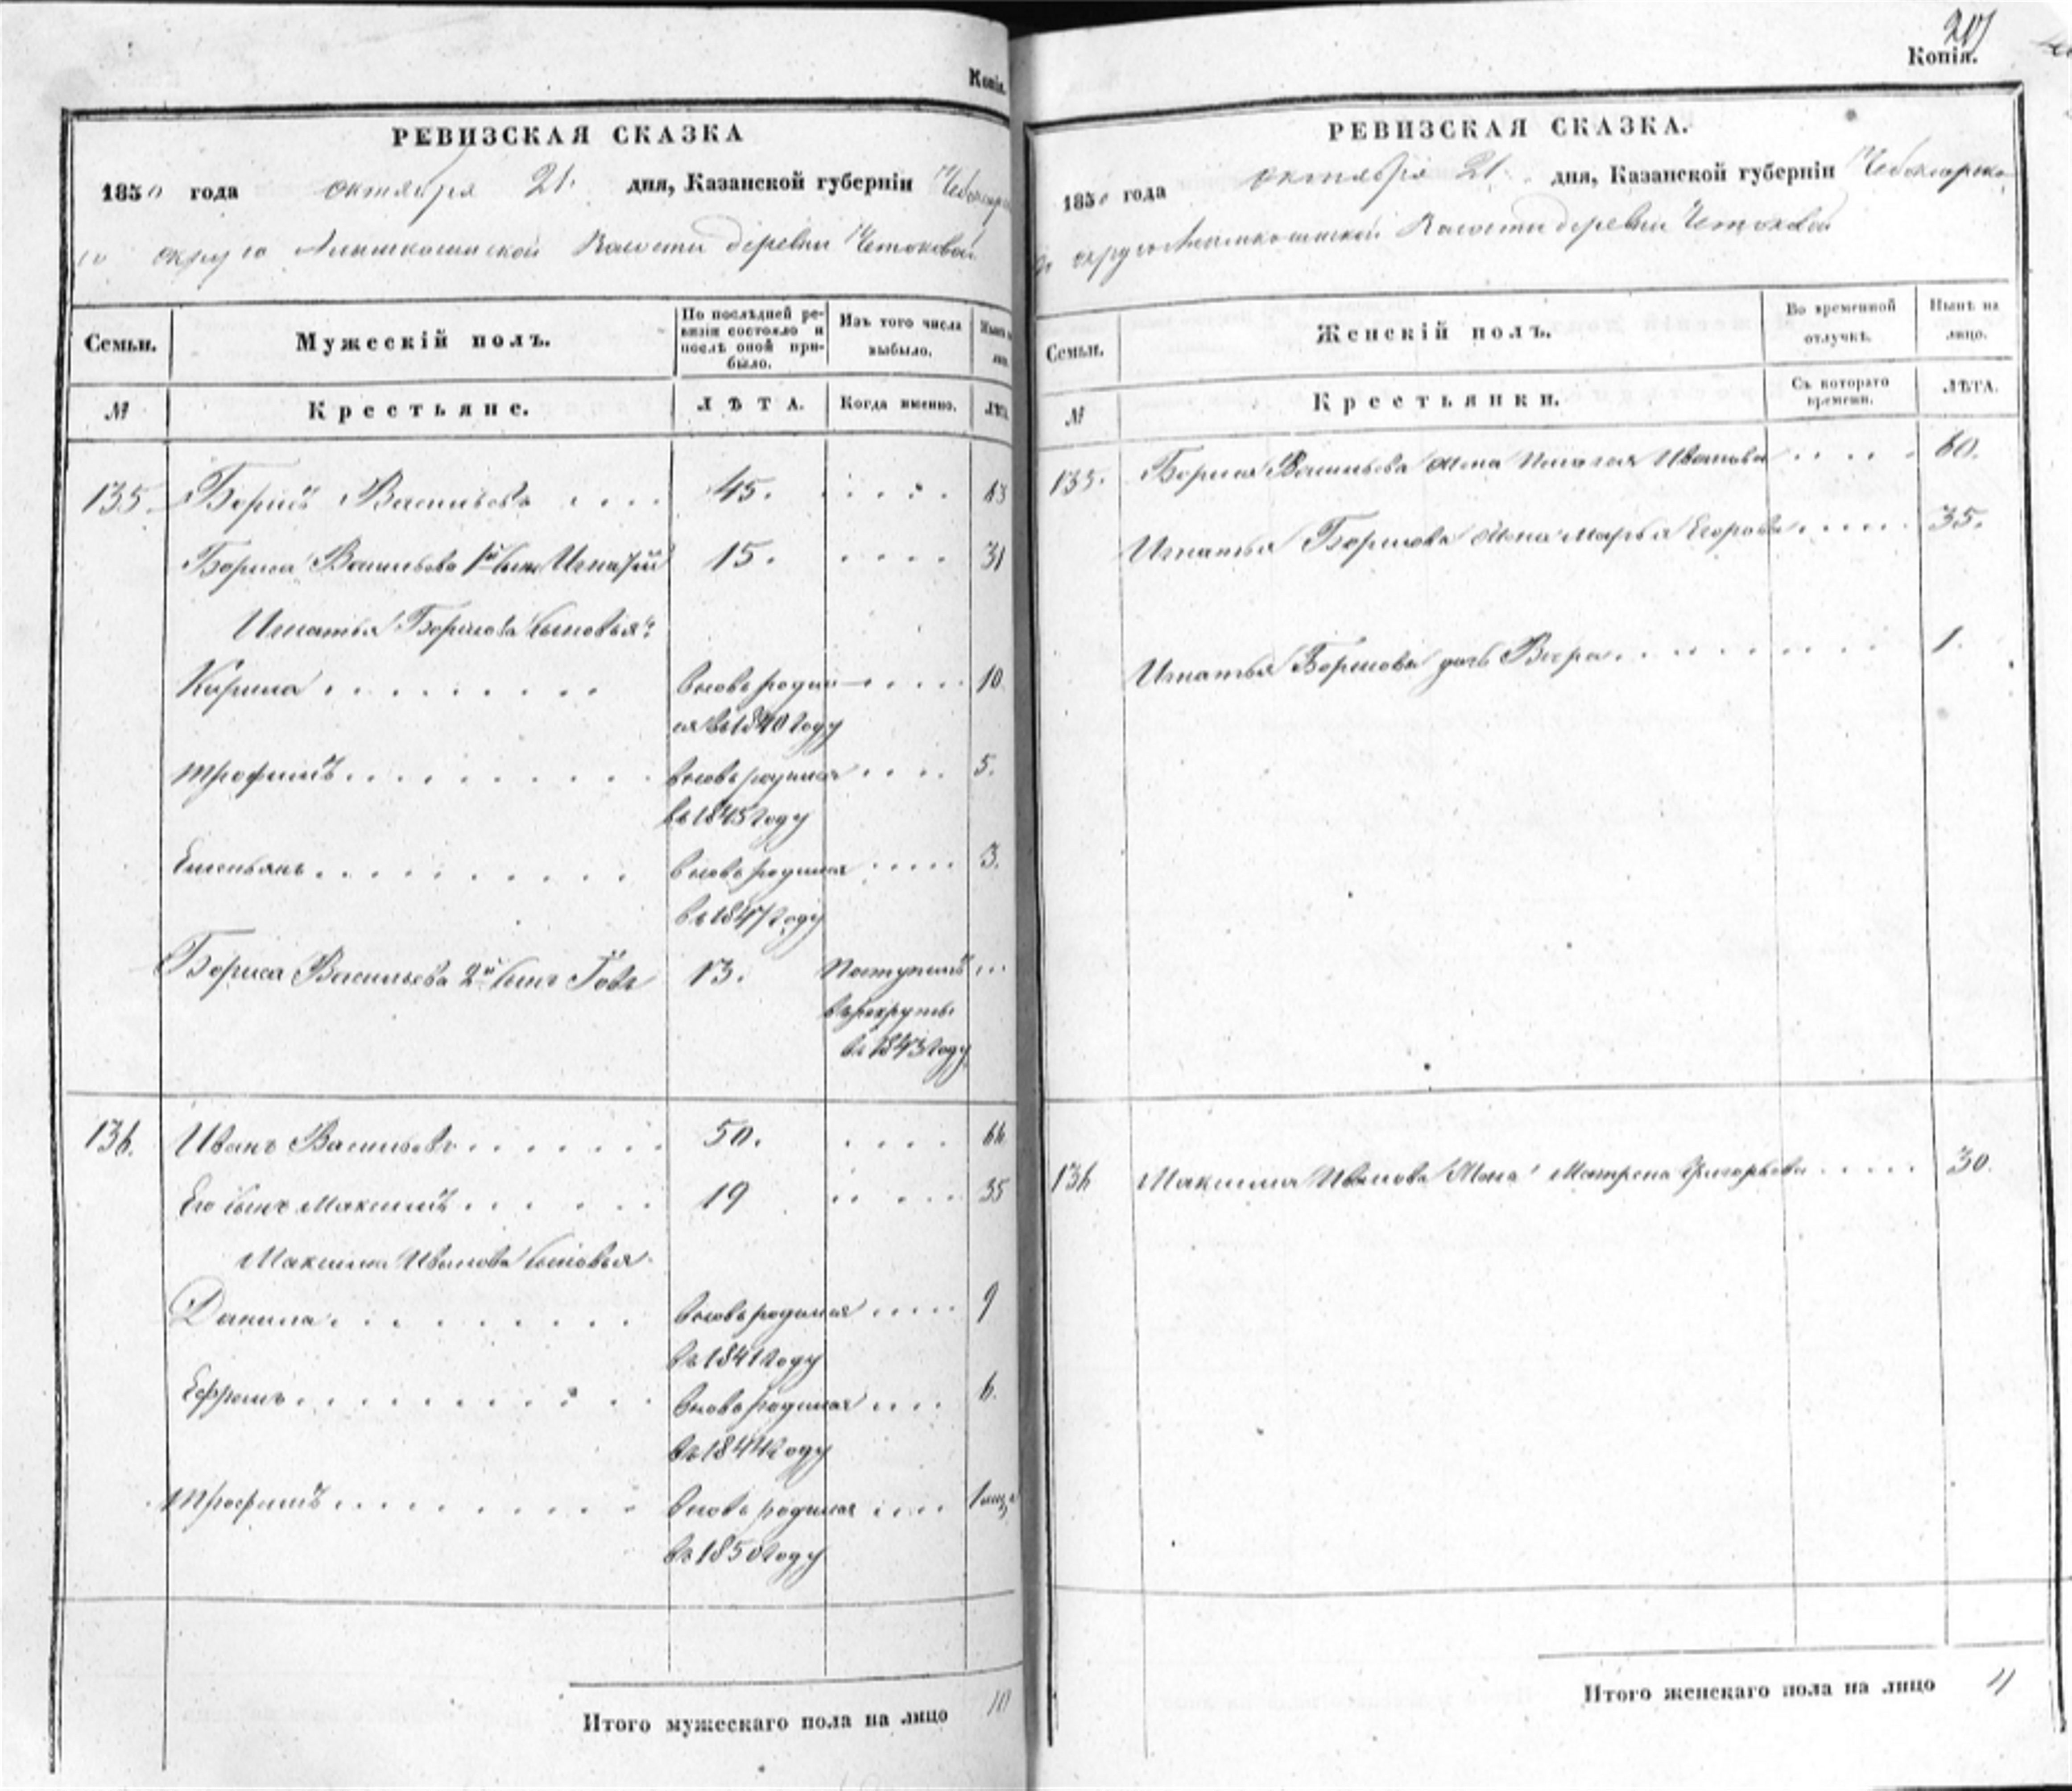 Копія.
РЕВИЗСКАЯ СКАЗКА
1850 года октября 21. дня, Казанской губерніи Чебоксарска
го округа Алымкасинской Волости деревни Четоковой
Семьи. Мужескій полъ. По послѣдней ре-визіи состояло и послѣ оной при-было. Изъ того числа выбыло.
№ Крестьяне. ЛѢТА. Когда именно.
135 Борисъ Васильевъ .... 45. .... 63
Бориса Васильева 1й сынъ Игнатій 15. .... 31
Игнатья Борисова сыновья:
Кирила ........ вновь родил- .... 10
ся въ 1840 году
Трофимъ ......... вновь родился .... 5.
въ 1845 году
Емельянъ .......... вновь родился ..... 3.
въ 1847 году
Бориса Васильева 2й сынъ Іовъ 13. Поступилъ ...
въ рекруты
въ 1843 году
136. Иванъ Васильевъ ....... 50. .... 66
Его сынъ Максимъ ...... 19 ..... 35
Максима Иванова сыновья
Данила ......... вновь родился ..... 9
въ 1841 году
Ефремъ ......... вновь родился .... 6.
въ 1844 году
Трофимъ ......... вновь родился .... 1
въ 1850 году
Итого мужескаго пола на лицо 10
Копія.
РЕВИЗСКАЯ СКАЗКА.
1850 года октября 21. дня, Казанской губерніи Чебоксарска
го округа Алымкасинской Волости деревни Четоковой
Семьи. Женскій полъ. Во временной отлучкѣ. Нынѣ на лицо.
№ Крестьянки. Съ котораго времени. ЛѢТА.
135. Бориса Васильева жена Иванова .... 60.
Игнатья Борисова жена Марья Егорова ..... 35.
Игнатья Борисова дочь Вера .......... 1.
136 Максима Иванова жена Матрена Григорьева ..... 30.
Итого женскаго пола на лицо 4